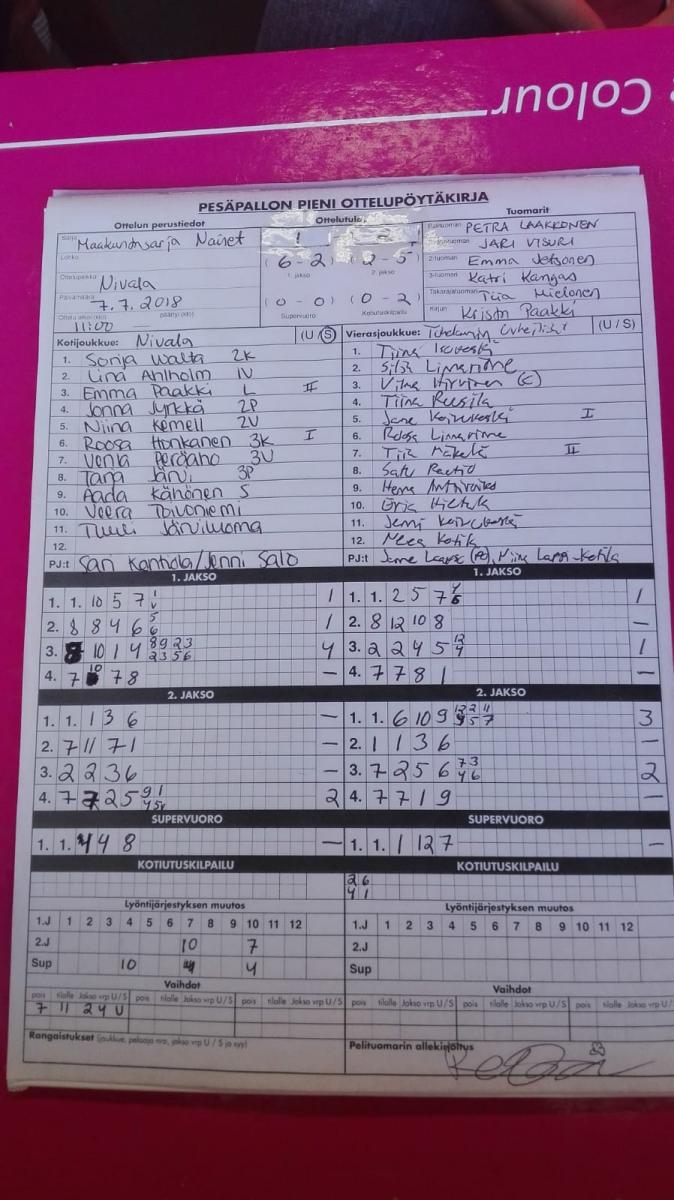 Colour
PESÄPALLON PIENI OTTELUPÖYTÄKIRJA
Ottelun perustiedot
Ottelutulos
Tuomarit
Sarja Maakuntasarja Naiset
1 2
PETRA LAAKKONEN
Lohko
(6-2) (2-5)
JARI VISURI
1. jakso 2. jakso
2-tuomari Emma
Ottelupaikka Nivala
3-tuomari Katri Kangas
Päivämäärä 7.7.2018
(0-0) (0-2)
Takarajatuomari Tiia
Ottelu alkoi (klo) 11:00 päättyi (klo)
Supervuoro Kotiutuskilpailu
Kirjuri Kristin Paakki
Kotijoukkue: Nivala (U/S)
1. Sonja Walta 2K
2. Lina Ahlholm 1V
3. Emma Paakki L II
4. Jonna Jyrkkä 2P
5. Niina Kemell 2V
6. Roosa Honkanen 3K I
7. Venla Peräaho 3V
8. Tanja Järvi 3P
9. Aada Kähönen S
10. Veera Toivoniemi
11. Tuuli Järviluoma
12.
PJ:t Sari Kanhola/Jenni Salo
Vierasjoukkue: (U/S)
1. Tiina
2. Silja Linnarinne
3. Vilma Hirvinen (C)
4. Tiina
5. I
6. Roosa Linnarinne
7. Tiia Mäkelä II
8. Satu
9. Henna
10.
11. Jenni
12. Neea Kotila
PJ:t
1. JAKSO
1. 1. 10 5 7 1 V 1
2. 8 8 4 6 5 6 1
3. 8 10 1 4 8 9 2 3 2 3 5 6 4
4. 7 10 7 8 –
1. JAKSO
1. 1. 2 5 7 1
2. 8 12 10 8 –
3. 2 2 4 5 12 4 1
4. 7 7 8 1 –
2. JAKSO
1. 1. 1 3 6 –
2. 7 11 7 1 –
3. 2 2 3 6 –
4. 7 7 2 5 9 1 2
2. JAKSO
1. 1. 6 10 9 3
2. 1 1 3 6 –
3. 7 2 5 6 7 3 4 6 2
4. 7 7 1 9 –
SUPERVUORO
1. 1. 4 4 8 –
SUPERVUORO
1. 1. 1 12 7 –
KOTIUTUSKILPAILU
KOTIUTUSKILPAILU
2 6
4 1
Lyöntijärjestyksen muutos
1.J 1 2 3 4 5 6 7 8 9 10 11 12
2.J 10 7
Sup 10 4 4
Lyöntijärjestyksen muutos
1.J 1 2 3 4 5 6 7 8 9 10 11 12
2.J
Sup
Vaihdot
pois tilalle Jakso vrp U/S pois tilalle Jakso vrp U/S pois tilalle Jakso vrp U/S
7 11 2 4 U
Vaihdot
pois tilalle Jakso vrp U/S pois tilalle Jakso vrp U/S pois tilalle Jakso vrp U/
Rangaistukset (joukkue, pelaaja nro, jakso vrp U / S ja syy)
Pelituomarin allekirjoitus